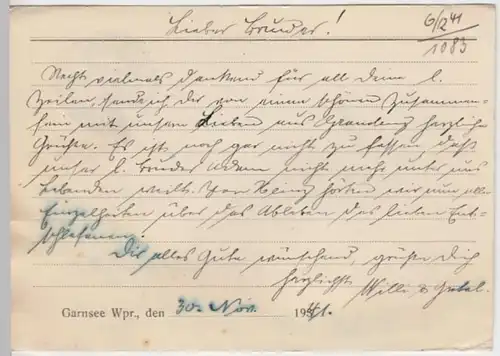 Lieber Bruder!
6/12 41
1083
Recht vielmals dankend für all deine l.
Zeilen, sende ich dir von einem schönen Zusammen-
sein mit unsern Lieben aus Graudenz herzliche
Grüße. Es ist noch gar nicht zu fassen daß
unser l. Bruder Adam nicht mehr unter uns
Lebenden weilt. Von hörten wir nun alle
Einzelheiten über das Ableben des lieben Ent-
schlafenen.
Dir alles Gute wünschend, grüßen Dich
herzlichst Willi &
Garnsee Wpr., den 30. Nov. 1941.